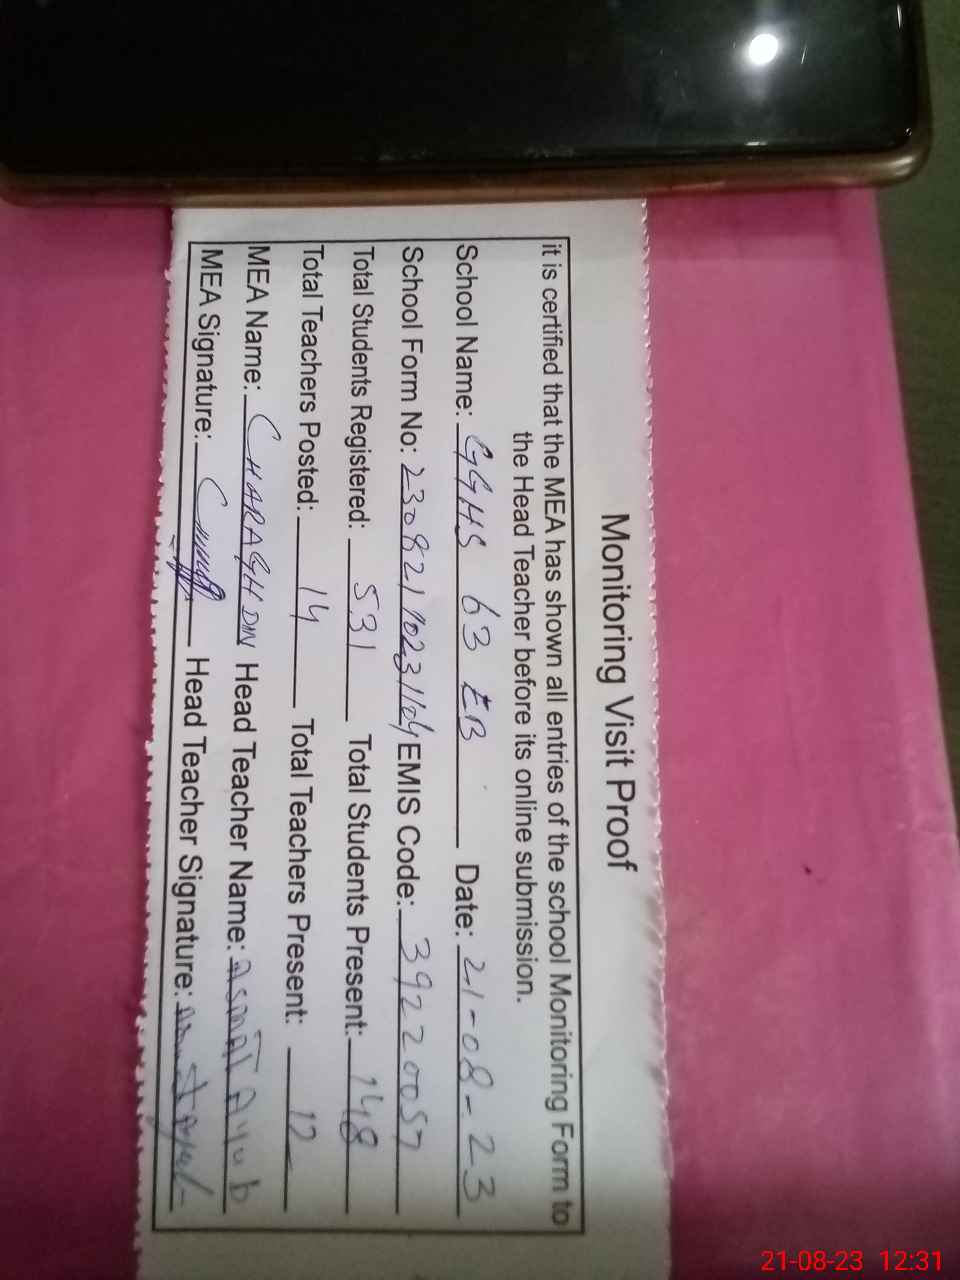 Monitoring Visit Proof
it is certified that the MEA has shown all entries of the school Monitoring Form to
the Head Teacher before its online submission.
School Name: GGHS 63 EB Date: 21-08-23
School Form No: 23082110231104 EMIS Code: 39220057
Total Students Registered: 531 Total Students Present: 148
Total Teachers Posted: 14 Total Teachers Present: 12
MEA Name: CHARAGH DIN Head Teacher Name: Asmat Ayub
MEA Signature: Head Teacher Signature:
21-08-23 12:31